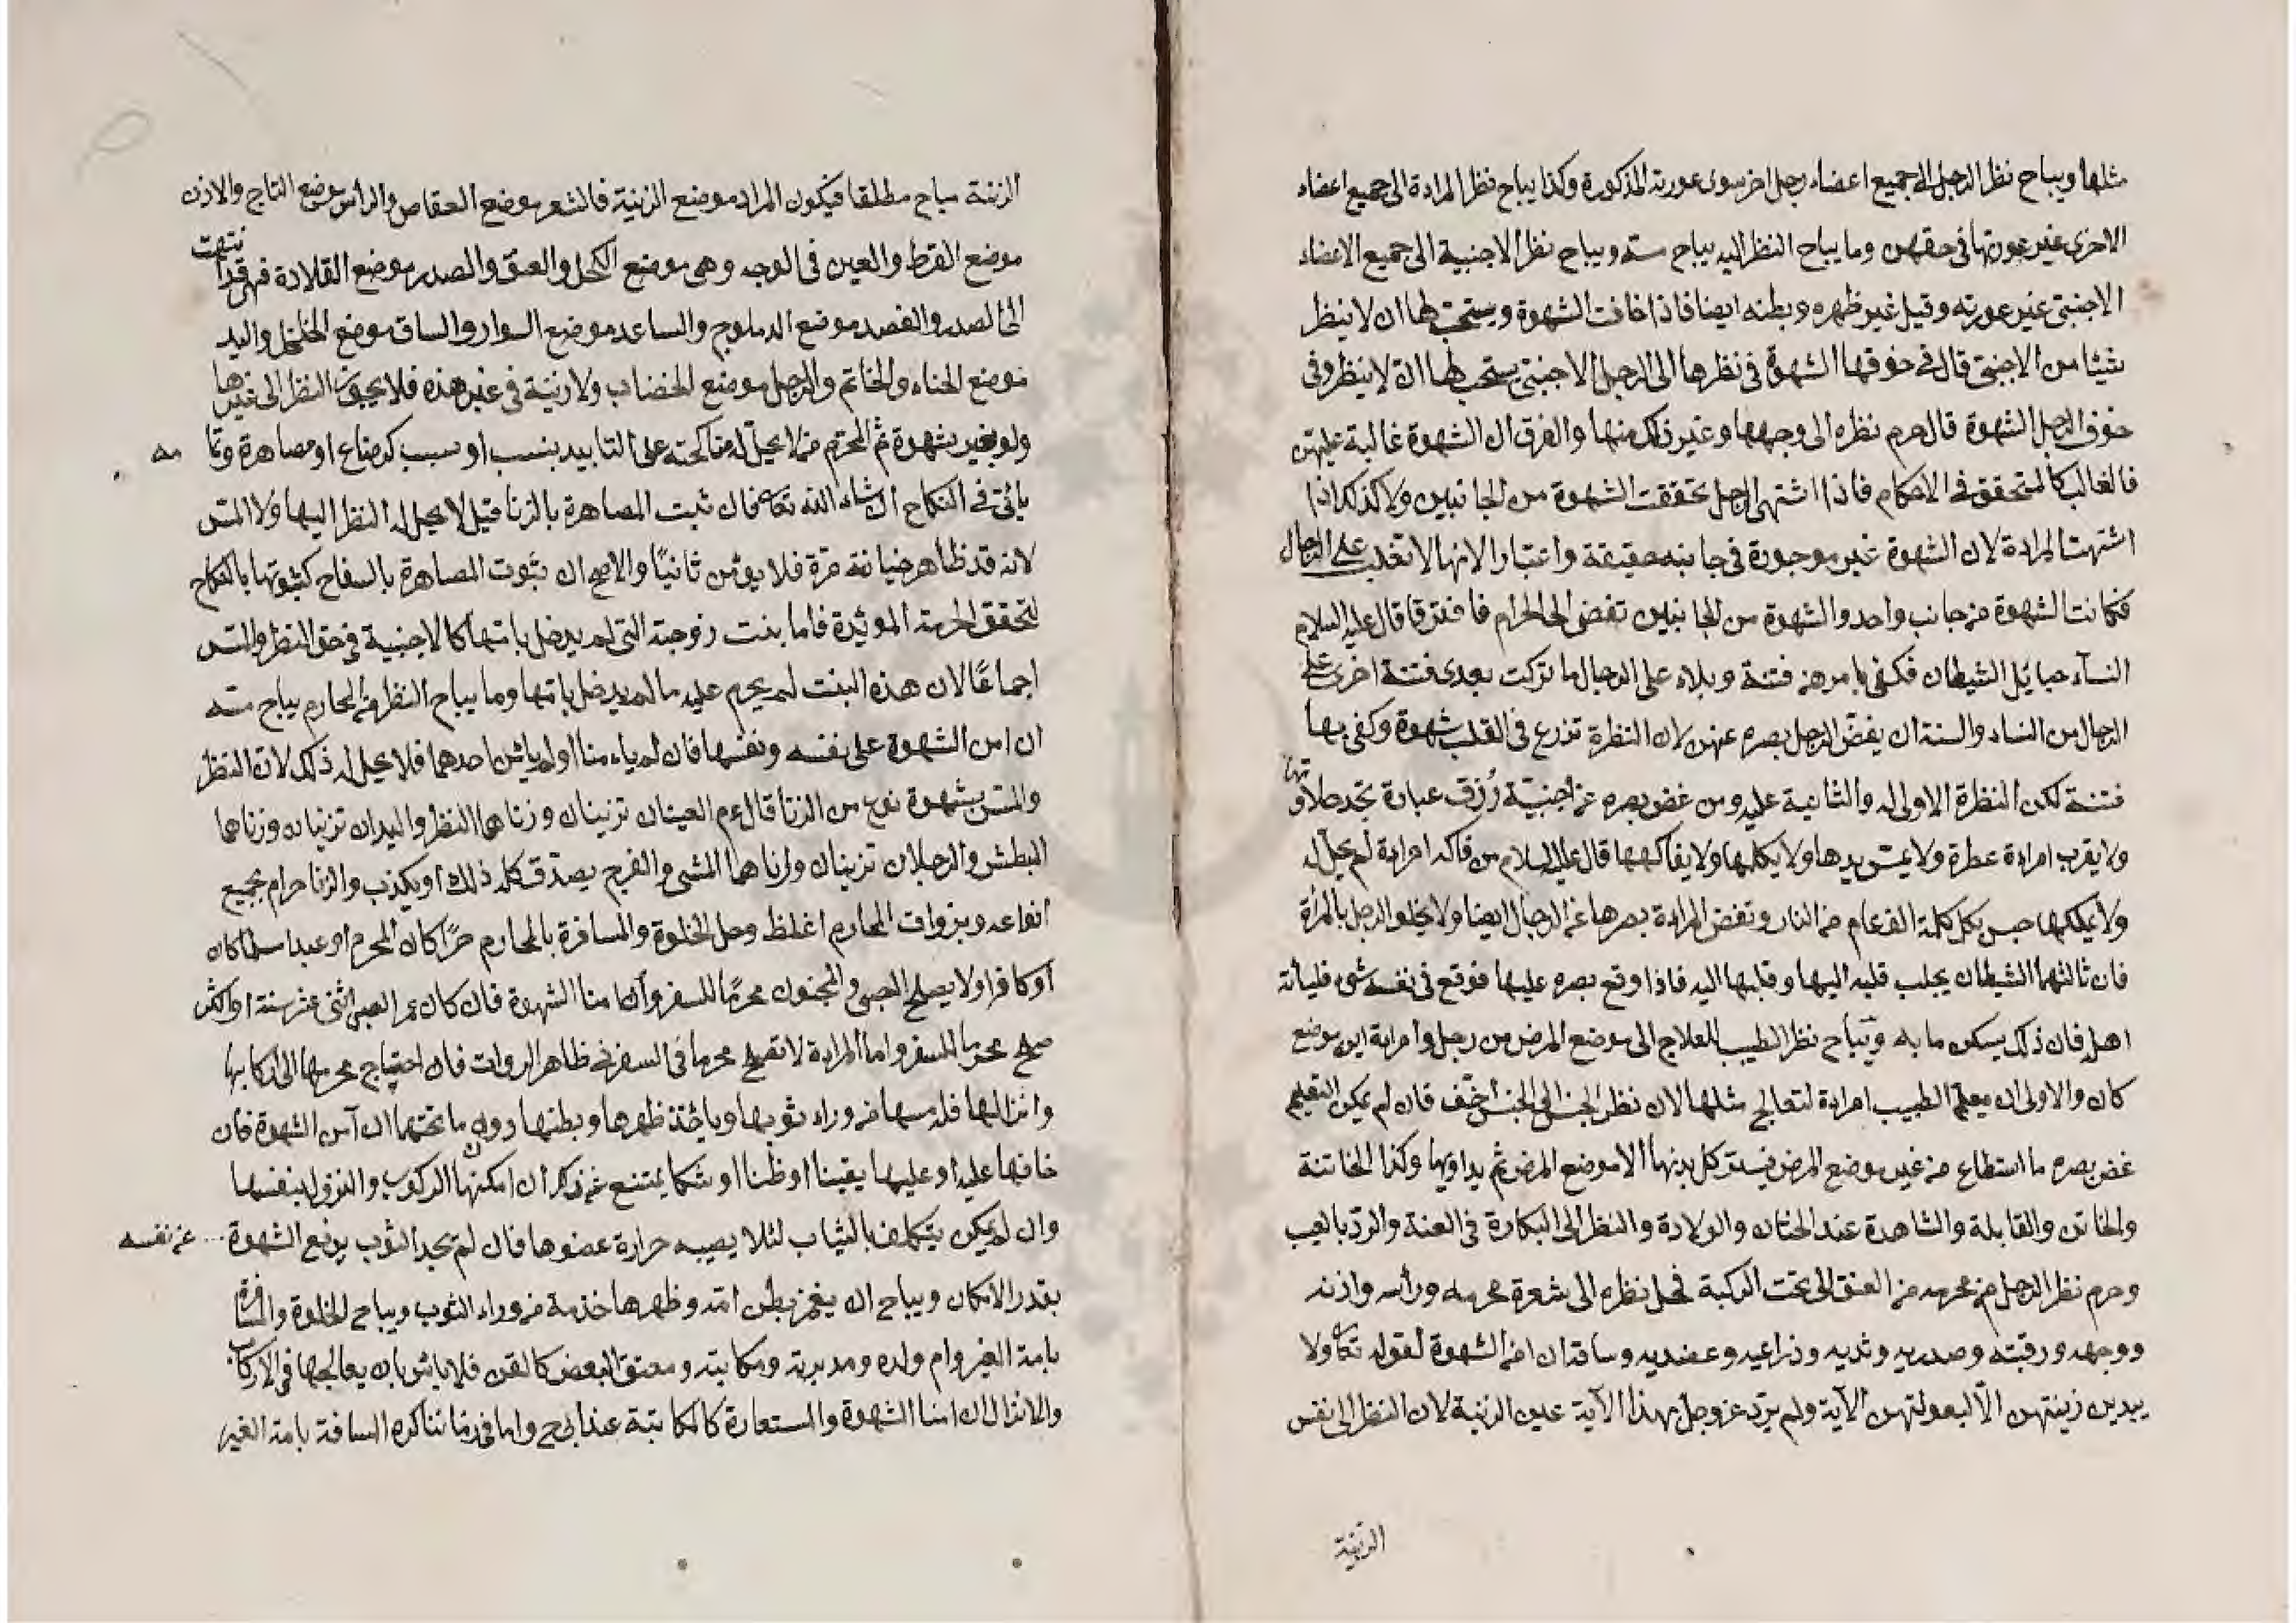 مثلها ويباح نظر الرجل الى جميع اعضاء رجل اخر سوى عورته المذكورة وكذا يباح نظر المراءة الى جميع اعضاء
الاخرى غير عورتها في حقهن وما يباح النظر اليه يباح مسّه ويباح نظر الاجنبية الى جميع الاعضاء
الاجنبىّ غير عورته وقيل غير ظهره وبطنه ايضا فاذا خافت الشهوة ويستحبّ لها ان لا ينظر
شيئا من الاجنبىّ قال في خوفها الشهوة في نظرها الى الرجل الاجنبىّ يستحب لها ان لا ينظر وفى
خوف الرجل الشهوة قال حرم نظره الى وجهها وغير ذلك منها والفرق ان الشهوة غالبة عليهن
فالغالب كالمتحقق في الاحكام فاذا اشتهى الرجل تحققت الشهوة من الجانبين ولا كذلك اذا
اشتهت المراءة لان الشهوة غير موجودة في جانبه حقيقة واعتبارا لانها لا تغلب على الرجال
فكانت الشهوة من جانب واحد والشهوة من الجانبين تفضى الى الحرام فافترقا قال عليه السلام
النسآء حبائل الشيطان فكفى بامرهن فتنة وبلاء على الرجال ما تركت بعدى فتنة اخرى على
الرجال من النساء والسنة ان يغضّ الرجل بصره عنهن لان النظرة تزرع في القلب شهوة وكفى بها
فتنة لكن النظرة الاولى له والثانية عليه ومن غض بصره عن اجنبيّة رُزق عبادة يجد حلاوتها
ولا يقرب امراءة عطرة ولا يمسّ يدها ولا يكلمها ولا يفاكهها قال عليه السلام من فاكه امراءة لم يحل له
ولا يملكها حبس بكل كلمة الف عام من النار وتغض المراءة بصرها عن الرجال ايضا ولا يخلو الرجل بالمرأة
فان ثالثهما الشيطان يجلب قلبه اليها وقلبها اليه فاذا وقع بصره عليها فوقع في نفسه شىء فليأت
اهله فان ذلك يسكن ما به ويباح نظر الطبيب للعلاج الى موضع المرض من رجل وامراءة اين موضع
كان والاولى ان يعلّم الطبيب امراءة لتعالج مثلها لان نظر الجنس الى الجنس اخفّ فان لم يمكن التعليم
غض بصره ما استطاع من غير موضع المرض فيستر كل بدنها الا موضع المرض ثم يداويها وكذا الخاتنة
والخاتن والقابلة والشاهدة عند الختان والولادة والنظر الى البكارة في العنة والردّ بالعيب
وحرم نظر الرجل من محرمه من العنق الى تحت الركبة فحل نظره الى شعرة محرمه ورأسه واذنه
ووجهه ورقبته وصدره وثديه وذراعيه وعضديه وساقه ان امن الشهوة لقوله تعالى ولا
يبدين زينتهن الّا لبعولتهن الآية ولم يرد عزوجل بهذا الآية عين الزينة لان النظر الى نفس
الزينة
الزينة مباح مطلقا فيكون المراد موضع الزينة فالشعر موضع العقاص والرأس موضع التاج والاذن
موضع القرط والعين في الوجه وهى موضع الكحل والعنق والصدر موضع القلادة فهى قد انتهت
الى الصدر والعضد موضع الدملوج والساعد موضع السوار والساق موضع الخلخال واليد
موضع الحناء والخاتم والرجل موضع الخضاب ولا زينة في غير هذه فلا يجوز النظر الى غيرها
ولو بغير شهوة ثم المحرم من لا يحلّ له مناكحته على التابيد بنسب او سبب كرضاع او مصاهرة وتمامه
يأتى في النكاح ان شاء الله تعالى فان ثبت المصاهرة بالزنا قيل لا يحل له النظر اليها ولا المسّ
لانه قد ظاهر خيانته مرّة فلا يؤمن ثانيًا والاصح ان ثبوت المصاهرة بالسفاح كثبوتها بالنكاح
لتحقق الحرمة المؤبّدة فاما بنت زوجته التى لم يدخل بامّها كالاجنبية في حق النظر والمسّ
اجماعًا لان هذه البنت لم يحرم عليه ما لم يدخل بامّها وما يباح النظر من المحارم يباح مسّه
ان امن الشهوة على نفسه ونفسها فان لم ياءمنا او لم يأمن احدهما فلا يحل له ذلك لان النظر
والمسّ بشهوة نوع من الزنا قال عم العينان تزنيان وزناهما النظر واليدان تزنيان وزناهما
البطش والرجلان تزنيان وزناهما المشى والفرج يصدّق كله ذلك او يكذب والزنا حرام بجميع
انواعه وبزوات المحارم اغلظ وحل الخلوة والمسافرة بالمحارم حرًا كان المحرم او عبدا مسلما كان
او كافرا ولا يصلح الصبى والمجنون محرمًا للسفر وأن امنا الشهوة فان كان عمر الصبى اثنى عشر سنة او اكثر
صلح محرما للسفر واما المراءة لا تصلح محرما في السفر في ظاهر الروات فان احتياج محرمها الى اركابها
وانزالها فلمسها من وراء ثوبها وياءخذ ظهرها وبطنها دون ما تحتهما ان آمن الشهوة فان
خافها عليه او عليها يقينا او ظنا او شكا يمتنع عن ذلك ان امكنها الركوب والنزول بنفسها
وان لم يمكن يتكلف بالثياب لئلا يصيبه حرارة عضوها فان لم يجد الثوب يدفع الشهوة عن نفسه
بقدر الامكان ويباح ان يغمز بطن امّه وظهرها خدمة من وراء الثوب ويباح الخلوة والمسافرة
بامة الغير وام ولده ومدبرته ومكاتبته ومعتق البعض كالقن فلا بأس بان يعالجها في الاركاب
والانزال ان امنا الشهوة والمستعارة كالمكاتبة عند ابى ح واما في زماننا كره المسافة بامة الغير